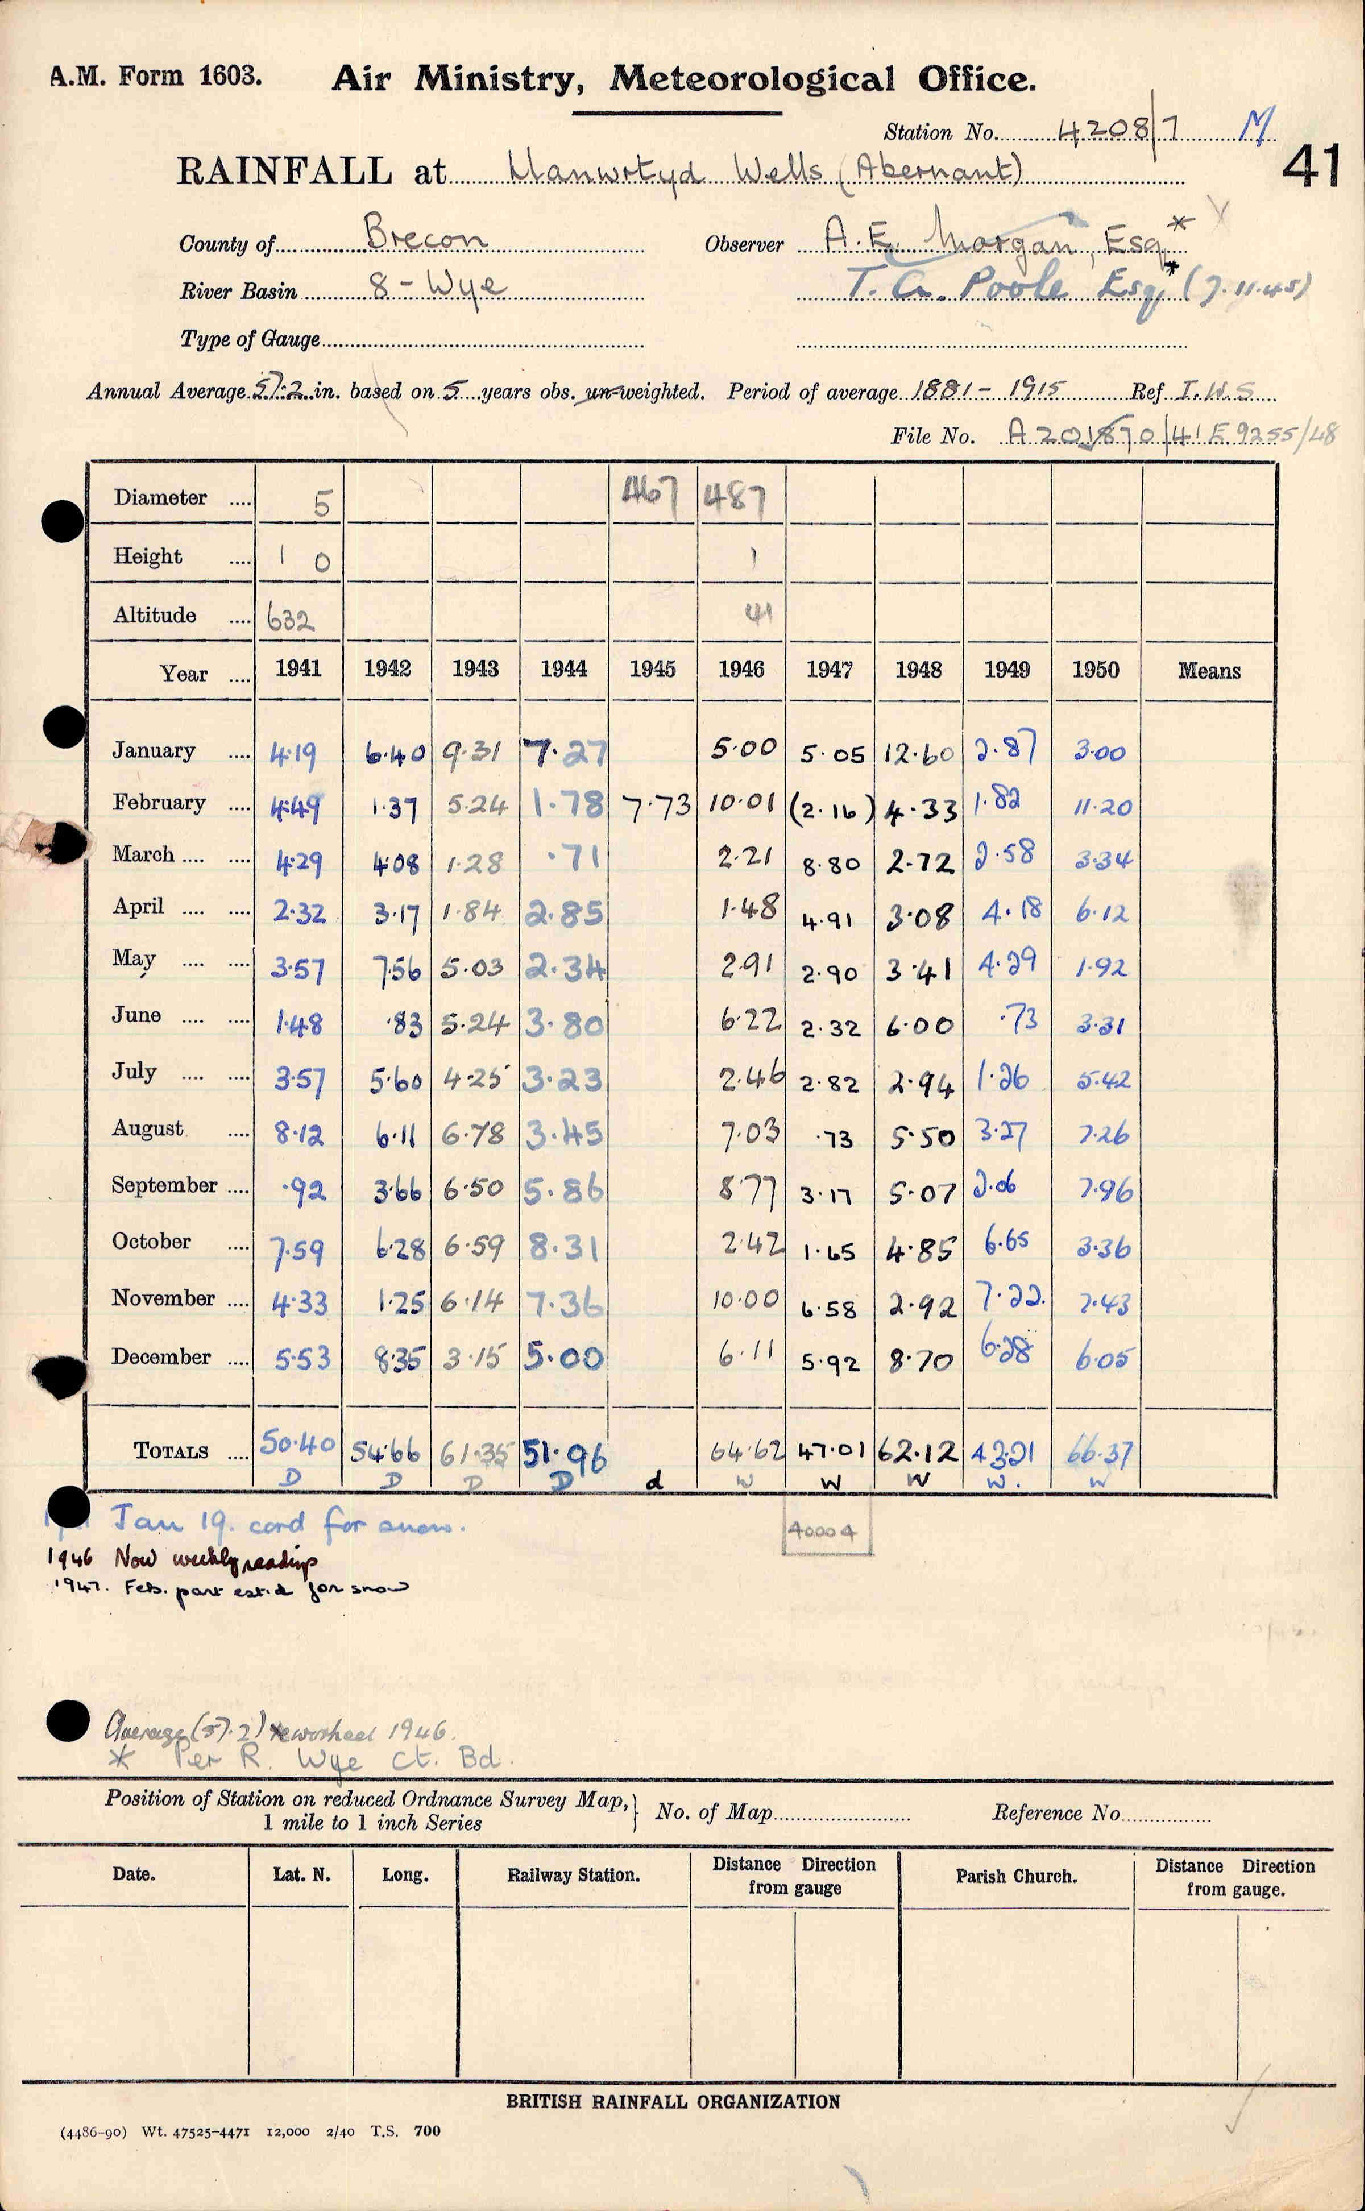 A.M. Form 1603. Air Ministry, Meteorological Office.
Station No. 4208/7 M
41
RAINFALL at Llanwrtyd Wells (Abernant)
County of Brecon Observer A.E. Morgan, Esq*
River Basin 8 - Wye T. G. Poole Esq* (7.11.45)
Type of Gauge
Annual Average 57.2 in. based on 5 years obs. un-weighted. Period of average 1881 - 1915 Ref I.W.S
File No. A 201870/41 E 9255/48
Diameter .... 5 467 487
Height .... 1 0 1
Altitude .... 632 41
Year .... 1941 1942 1943 1944 1945 1946 1947 1948 1949 1950 Means
January .... 4.19 6.40 9.31 7.27 5.00 5.05 12.60 2.87 3.00
February .... 4.49 1.37 5.24 1.78 7.73 10.01 (2.16) 4.33 1.82 11.20
March .... .... 4.29 4.08 1.28 .71 2.21 8.80 2.72 2.58 3.34
April .... .... 2.32 3.17 1.84 2.85 1.48 4.91 3.08 4.18 6.12
May .... .... 3.57 7.56 5.03 2.34 2.91 2.90 3.41 4.29 1.92
June .... .... 1.48 .83 5.24 3.80 6.22 2.32 6.00 .73 3.31
July .... .... 3.57 5.60 4.25 3.23 2.46 2.82 2.94 1.26 5.42
August .... 8.12 6.11 6.78 3.45 7.03 .73 5.50 3.27 7.26
September .... .92 3.66 6.50 5.86 8.77 3.17 5.07 2.06 7.96
October .... 7.59 6.28 6.59 8.31 2.42 1.65 4.85 6.65 3.36
November .... 4.33 1.25 6.14 7.36 10.00 6.58 2.92 7.22. 7.43
December .... 5.53 8.35 3.15 5.00 6.11 5.92 8.70 6.28 6.05
TOTALS .... 50.40 54.66 61.35 51.96 64.62 47.01 62.12 43.21 66.37
D D D D d W W W W. W
Jan 19. cord for snow.
40004
1946 Now weekly readings
1947. Feb. part est.d for snow
Average (57.2) reworked 1946.
* Per R. Wye Ct. Bd.
Position of Station on reduced Ordnance Survey Map, 1 mile to 1 inch Series } No. of Map Reference No.
Date. Lat. N. Long. Railway Station. Distance Direction from gauge Parish Church. Distance Direction from gauge.
BRITISH RAINFALL ORGANIZATION
(4486-90) Wt. 47525-4471 12,000 2/40 T.S. 700